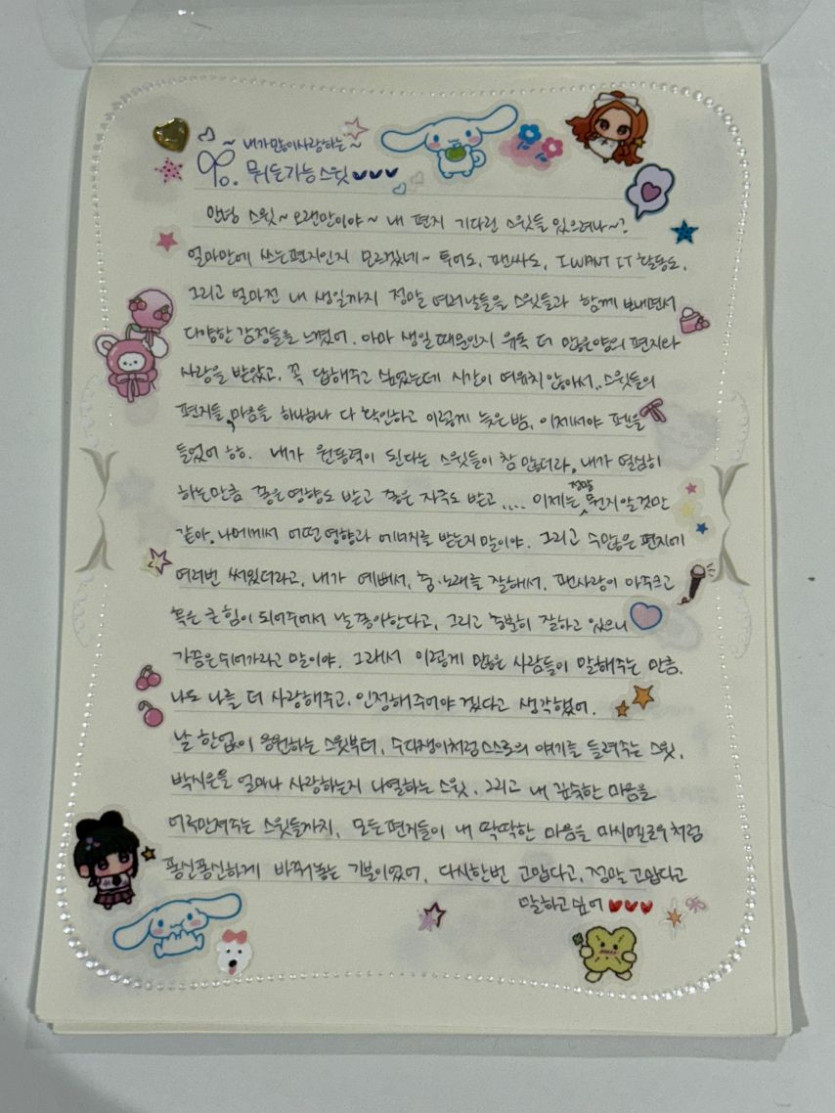 ~ 내가 많이 사랑하는 ~
To. 뭐든가능 스윗 ♥♥♥
안녕 스윗~ 오랜만이야~ 내 편지 기다린 스윗들 있으려나~?
얼마만에 쓰는편지인지 모르겠네~ 투어도, 팬싸도, I WANT IT 활동도,
그리고 얼마전 내 생일까지 정말 여러날들을 스윗들과 함께 보내면서
다양한 감정들을 느꼈어. 아마 생일 때문인지 유독 더 많은양의 편지와
사랑을 받았고, 꼭 답해주고 싶었는데 시간이 여유치 않아서.. 스윗들의
편지들, 마음들 하나하나 다 확인하고 이렇게 늦은밤, 이제서야 펜을
들었어 하하. 내가 원동력이 된다는 스윗들이 참 많더라, 내가 열심히
하는만큼 좋은영향도 받고 좋은 자극도 받고.... 이제는 정말 뭔지 알 것만
같아, 나에게서 어떤 영향과 에너지를 받는지 말이야. 그리고 수많은 편지에
여러번 써있더라고, 내가 예뻐서, 춤·노래를 잘해서, 팬사랑이 아주크고
혹은 큰 힘이 되어주어서 날 좋아한다고, 그리고 충분히 잘하고 있으니
가끔은 쉬어가라고 말이야. 그래서 이렇게 많은 사람들이 말해주는 만큼,
나도 나를 더 사랑해주고, 인정해주어야 겠다고 생각했어.
날 한없이 응원하는 스윗부터, 수다쟁이처럼 스스로의 얘기를 들려주는 스윗,
박시은을 얼마나 사랑하는지 나열하는 스윗, 그리고 내 깊숙한 마음을
어루만져주는 스윗들까지, 모든편지들이 내 딱딱한 마음을 마시멜로우처럼
퐁신퐁신하게 바꿔놓는 기분이었어, 다시한번 고맙다고, 정말 고맙다고
말하고싶어 ♥♥♥